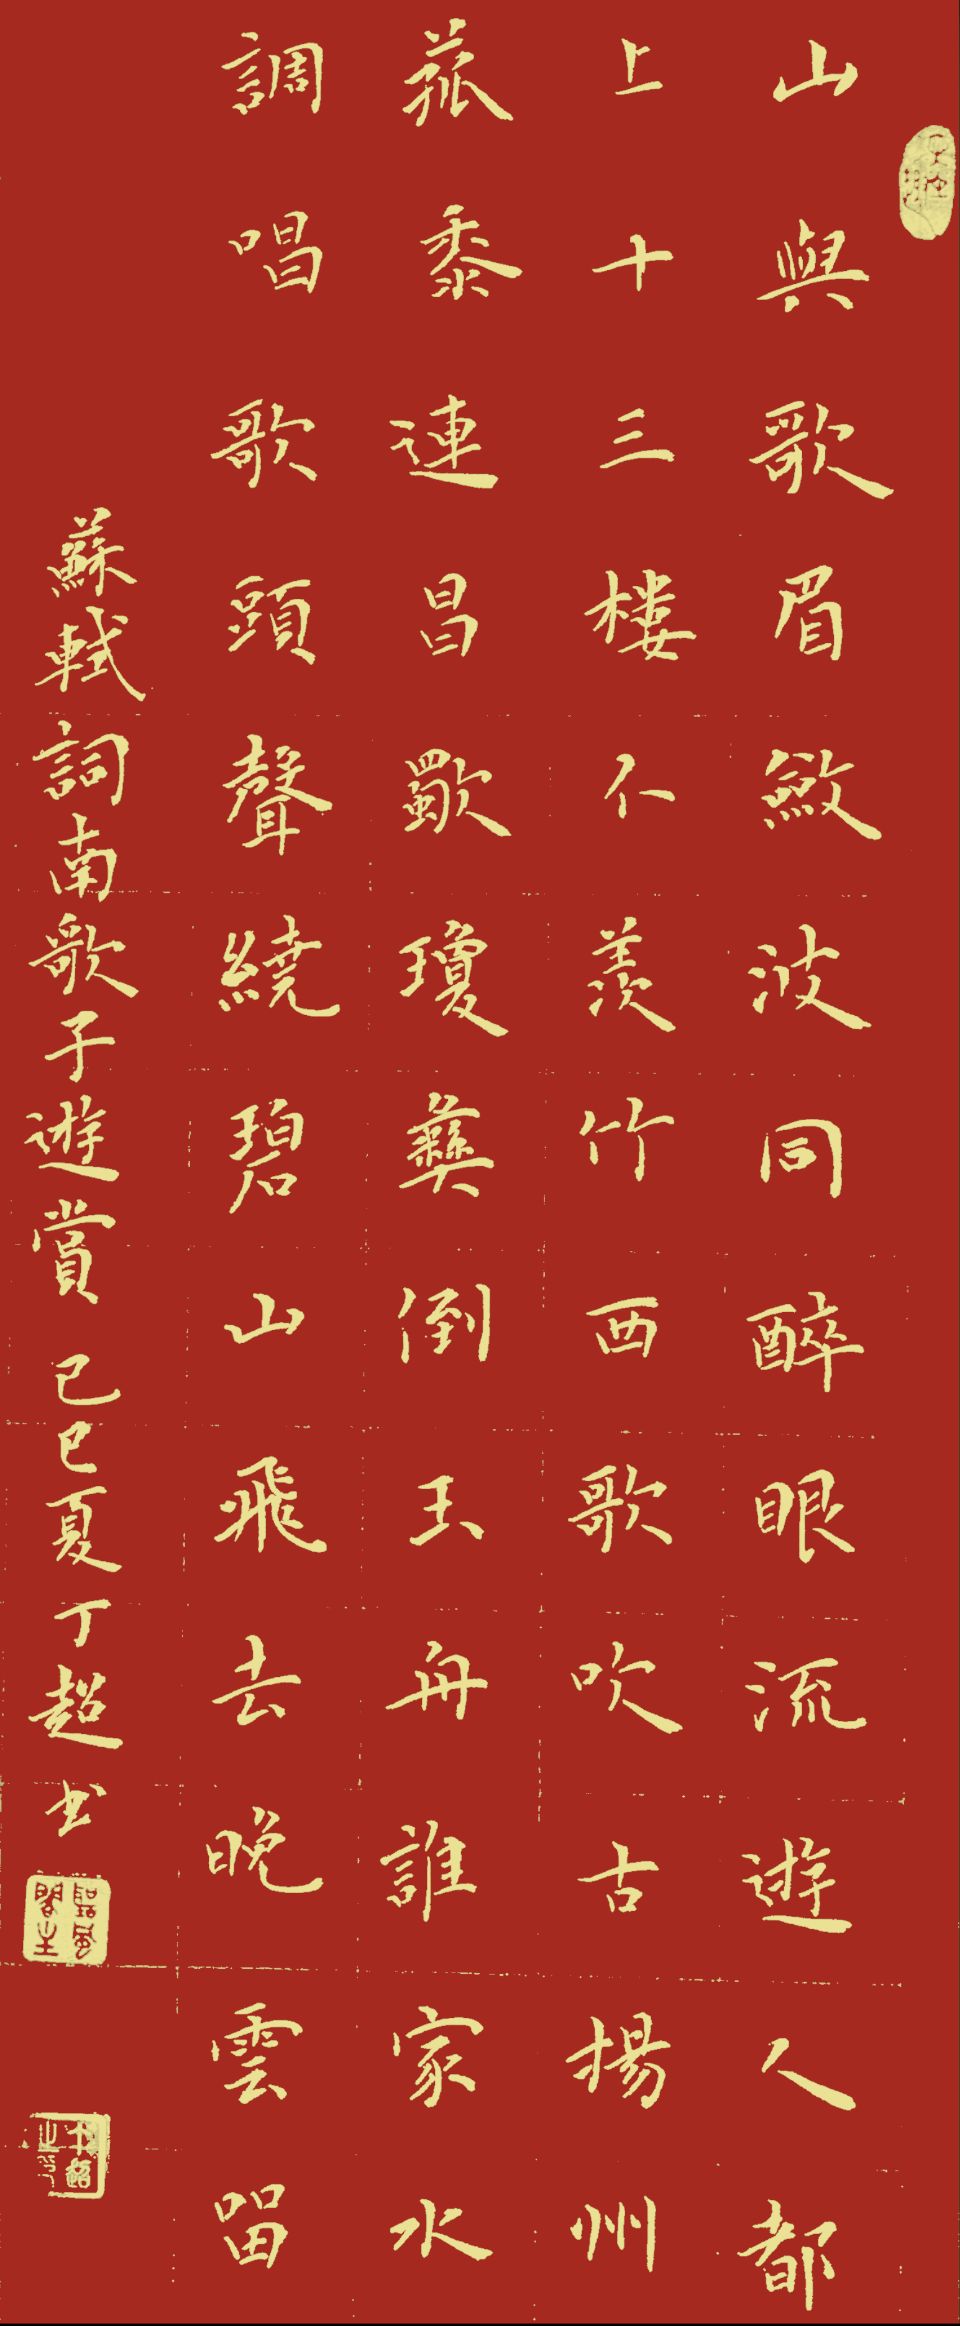 山與歌眉斂波同醉眼流遊人都
上十三樓不羨竹西歌吹古揚州
菰黍連昌歜瓊彝倒玉舟誰家水
調唱歌頭聲繞碧山飛去晚雲留
蘇軾詞南歌子遊賞 己巳夏丁超书
丁超之印